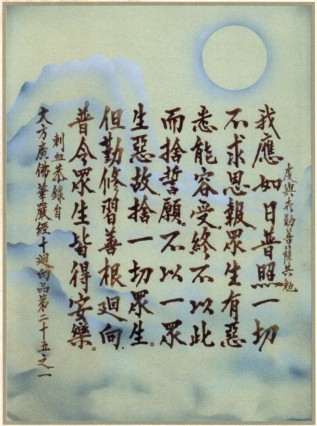 與
菩薩共勉
我應如日普照一切
不求恩報。眾生有惡
悉能容受。終不以此
而捨誓願。不以一眾
生惡故捨一切眾生。
但勤修習善根迴向
普令眾生皆得安樂。
刺血恭錄自
大方廣佛華嚴經十迴向品第二十五之一